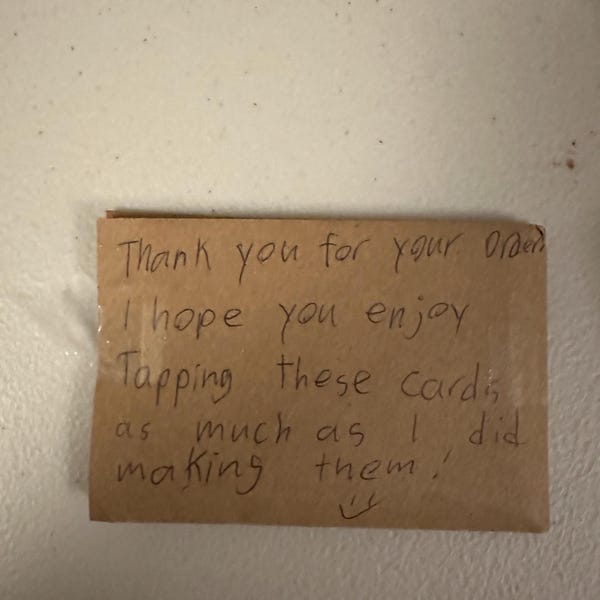 Thank you for your order
I hope you enjoy
Tapping these cards
as much as I did
making them!